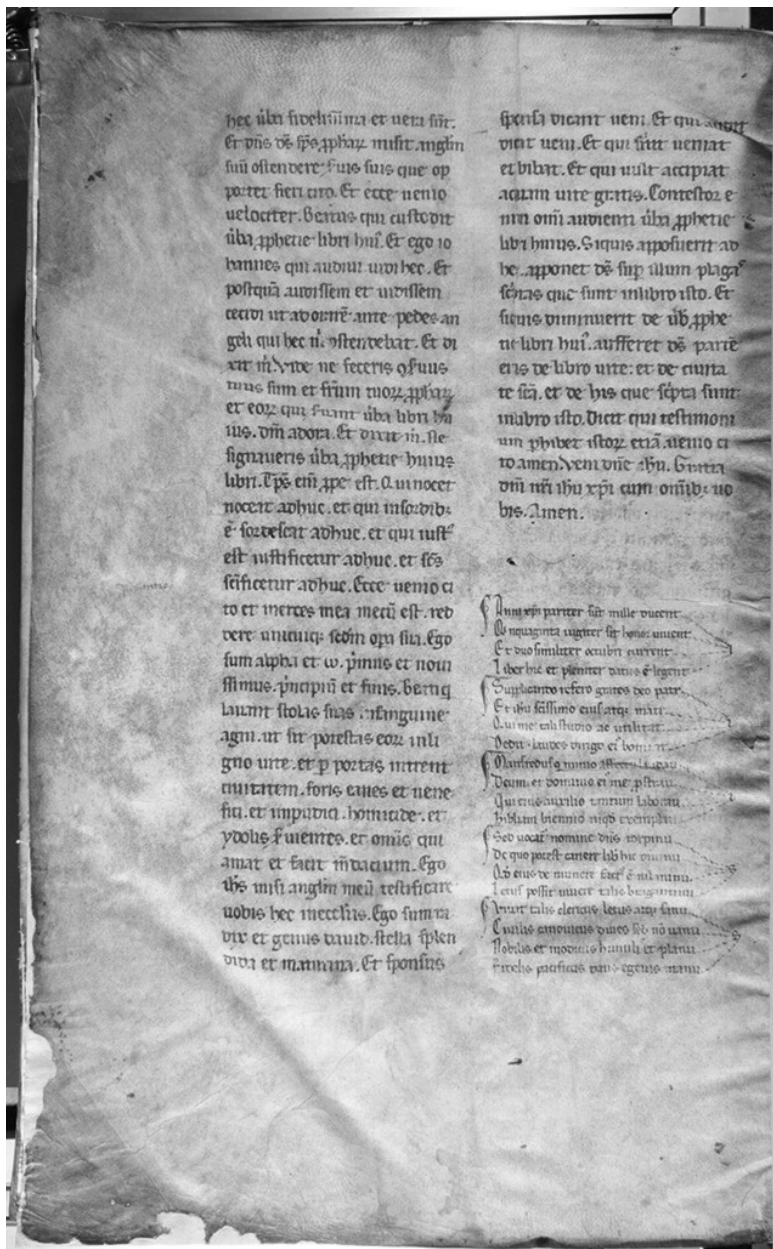 hec ūba fidelissima et uera sūt.
Et dn̄s ds̄ sp̄s ꝓphaꝝ misit anglm̄
suū ostendere suis que op
portet fieri cito. Et ecce uenio
uelociter. Beatus qui custodit
ūba ꝓphetie libri huiꝰ. Et ego io
hannes qui audiui uidi hec. Et
postquā audissem et uidissem
cecidi ut adorarē ante pedes an
geli qui hec m̄ ostendebat. Et di
xit m̄. Vide ne feceris ꝯseruus
tuus sum et frūm tuoꝝ ꝓphaꝝ
et eoꝝ qui seruant ūba libri hu
ius. dm̄ adora. Et dixit m̄. Ne
signaueris ūba ꝓphetie huius
libri. Tp̄s em̄ ꝓpe est. Qui nocet
noceat adhuc. et qui insordibꝫ
ē sordescat adhuc. et qui iustꝰ
est iustificetur adhuc. et sc̄s
sc̄ificetur adhuc. Ecce uenio ci
to et merces mea mecū est. red
dere unicuiqꝫ scdm̄ opa sua. Ego
sum alpha et ω. p̄mus et noui
ssimus. p̄ncipiū et finis. Beati q̄
lauant stolas suas in sanguine
agni. ut sit potestas eoꝝ in li
gno uite. et ꝑ portas intrent
ciuitatem. foris canes et uene
fici. et inpudici. homicide. et
ydolis s̄uientes. et omīs qui
amat et facit m̄dacium. Ego
ih̄s misi anglm̄ meū testificare
uobis hec in ecclīis. Ego sum ra
dix et genus dauid. stella splen
dida et matutina. Et sponsus
sponsa dicunt ueni. Et qui audit
dicat ueni. Et qui sitit ueniat
et bibat. Et qui uult accipiat
aquam uite gratis. Contestor e
nim omī audienti ūba ꝓphetie
libri huius. Siquis apposuerit ad
hec. apponet ds̄ suꝑ illum plagas
sc̄ptas que sunt in libro isto. Et
siquis diminuerit de ūb. ꝓphe
tie libri huiꝰ. aufferet ds̄ partē
eius de libro uite. et de ciuita
te sc̄a. et de his que sc̄pta sunt
in libro isto. Dicit qui testimoni
um phibet istoꝝ etiā. uenio ci
to amen. Veni dn̄e ih̄u. Gratia
dn̄i nr̄i ih̄u xp̄i cum omībꝫ uo
bis. Amen.
Anni xp̄i pariter sūt mille ducent
Quinquaginta iugiter sit honor uiuent
Et duo similiter octubri current
Liber hic et pleniter datus ē legent
Supplicanto refero grates deo patr
Et ih̄u sc̄issimo eius atqꝫ matri
Qui me tali studio ac utilitat
Dedit. laudes pingo ei bonitat
Manfredus q̄ nimio affectu laudau
Deum et dominio ei me ꝓstrau
Qui eius auxilio tantum laborau
Bibliam biennio exemplau
Sed uocat nomine dn̄s
De quo potest caneri lib̄ hic diuinu
Qd̄ eius de munere factꝰ ē nil minu
Letus possit uiuere talis
Viuat talis clericus letus atqꝫ sanu
Ciuilis canonicus diues sed nō uanu
Nobilis et modicus humili et planu
fidelis pacificus dans egenis manu